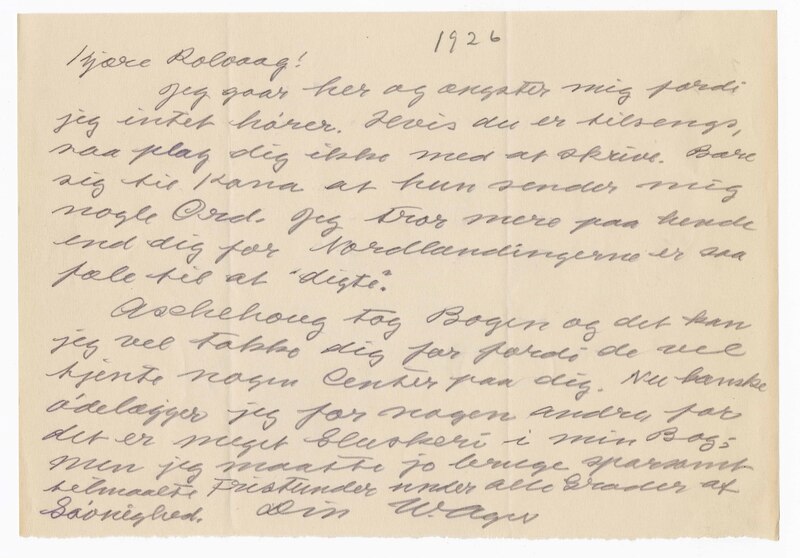 1926
Kjære Rolvaag!
Jeg gaar her og ængster mig fordi
jeg intet hører. Hvis du er tilsengs,
saa plag dig ikke med at skrive. Bare
sig til Kona at hun sender mig
nogle Ord. Jeg tror mere paa hende
end dig for Nordlændingerne er saa
fæle til at "digte".
Aschehoug tog Bogen og det kan
jeg vel takke dig for fordi de vel
tjente nogen Center paa dig. Nu kanske
ødelægger jeg for nogen andre for
det er meget Sluskeri i min Bog;
men jeg maatte jo bruge sparsomt
tilmaalte Fristunder under alle Grader af
Søvnighed. Din W. Ager